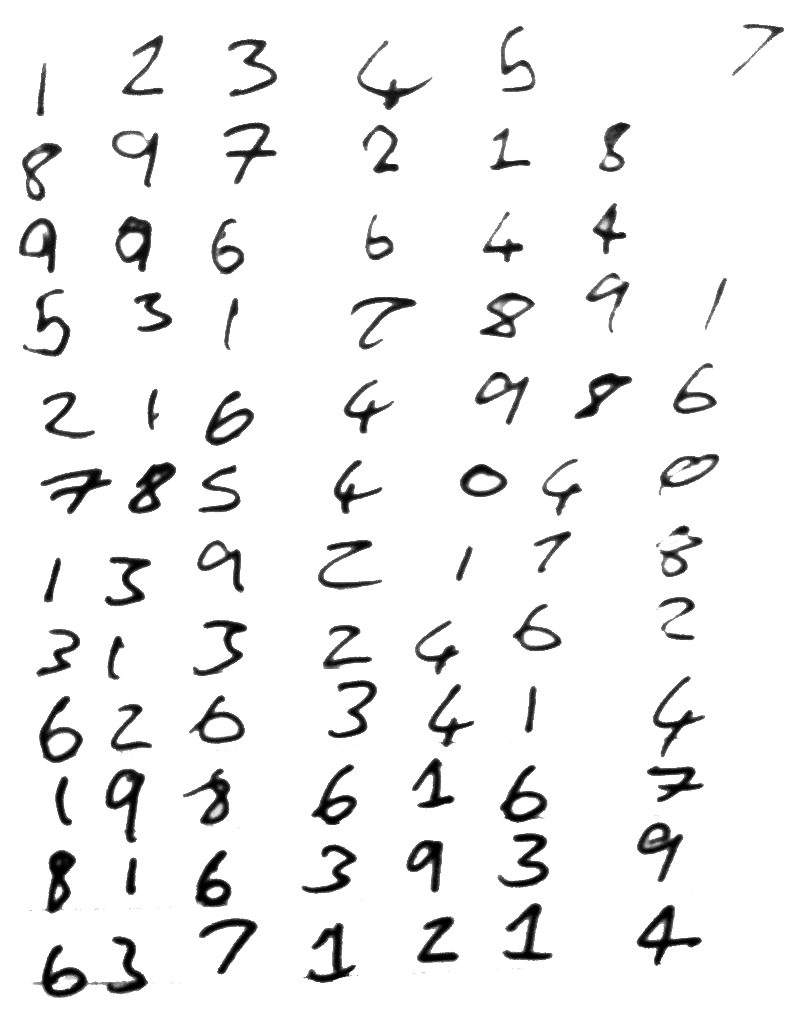 1 2 3 4 5 7
8 9 7 2 1 8
9 9 6 6 4 4
5 3 1 7 8 9 1
2 1 6 4 9 8 6
7 8 5 4 0 4 0
1 3 9 2 1 7 8
3 1 3 2 4 6 2
6 2 6 3 4 1 4
1 9 8 6 1 6 7
8 1 6 3 9 3 9
6 3 7 1 2 1 4